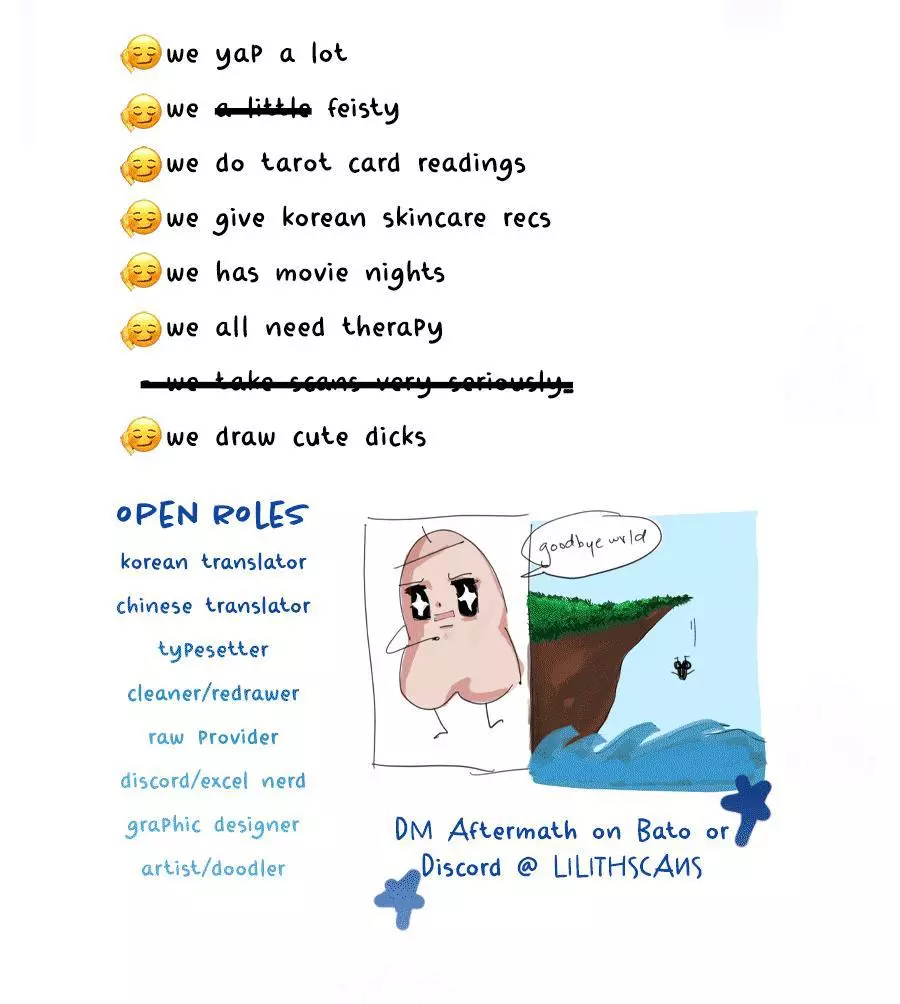 we yap a lot
we a little feisty
we do tarot card readings
we give korean skincare recs
we has movie nights
we all need therapy
- we take scans very seriously.
we draw cute dicks
OPEN ROLES
korean translator
chinese translator
typesetter
cleaner/redrawer
raw provider
discord/excel nerd
graphic designer
artist/doodler
goodbye wrld
DM Aftermath on Bato or
Discord @ LILITHSCANS